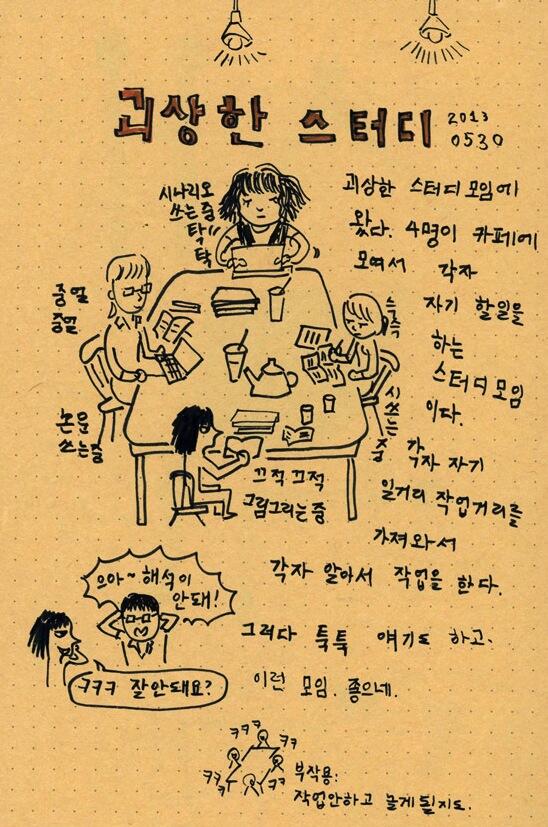 괴상한 스터디 2013
0530
시나리오
쓰는중
탁
탁
괴상한 스터디 모임에
왔다. 4명이 카페에
모여서 각자
자기 할일을
하는
스터디 모임
이다.
각자 자기
일거리 작업거리를
가져와서
각자 알아서 작업을 한다.
중얼
중얼
논문
쓰는중
슥슥
시쓰는중
끄적 끄적
그림그리는중
으아~ 해석이
안돼!
ㅋㅋㅋ 잘안돼요?
그러다 툭툭 얘기도 하고.
이런 모임. 좋으네.
ㅋㅋㅋ
ㅋㅋ
ㅋㅋ
ㅋㅋ
ㅋㅋ
부작용:
작업안하고 놀게될지도.